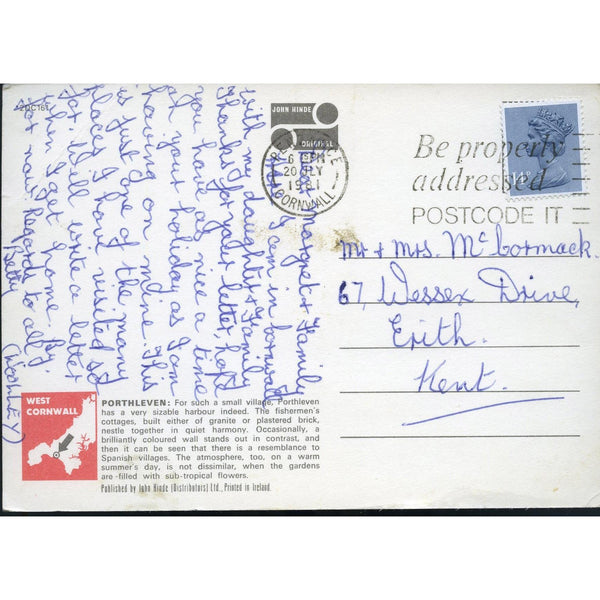 2DC161
JOHN HINDE
ORIGINAL
PENZANCE
6 PM
20 JLY
1981
CORNWALL
Be properly
addressed
POSTCODE IT
14P
Dear Margret & Family
I am in Cornwall
with my daughter & Family
Thanks for your letter, hope
you have as nice a time
on your holiday as I am
having on mine. This
is just one of the many
places I have visited so
far. Will write a letter
when I get home. By
for now. Regards to all.
Betty
Mr & Mrs. McCormack.
67, Wessex Drive,
Erith.
Kent.
WEST
CORNWALL
PORTHLEVEN: For such a small village, Porthleven
has a very sizable harbour indeed. The fishermen's
cottages, built either of granite or plastered brick,
nestle together in quiet harmony. Occasionally, a
brilliantly coloured wall stands out in contrast, and
then it can be seen that there is a resemblance to
Spanish villages. The atmosphere, too, on a warm
summer's day, is not dissimilar, when the gardens
are filled with sub-tropical flowers.
Published by John Hinde (Distributors) Ltd., Printed in Ireland.